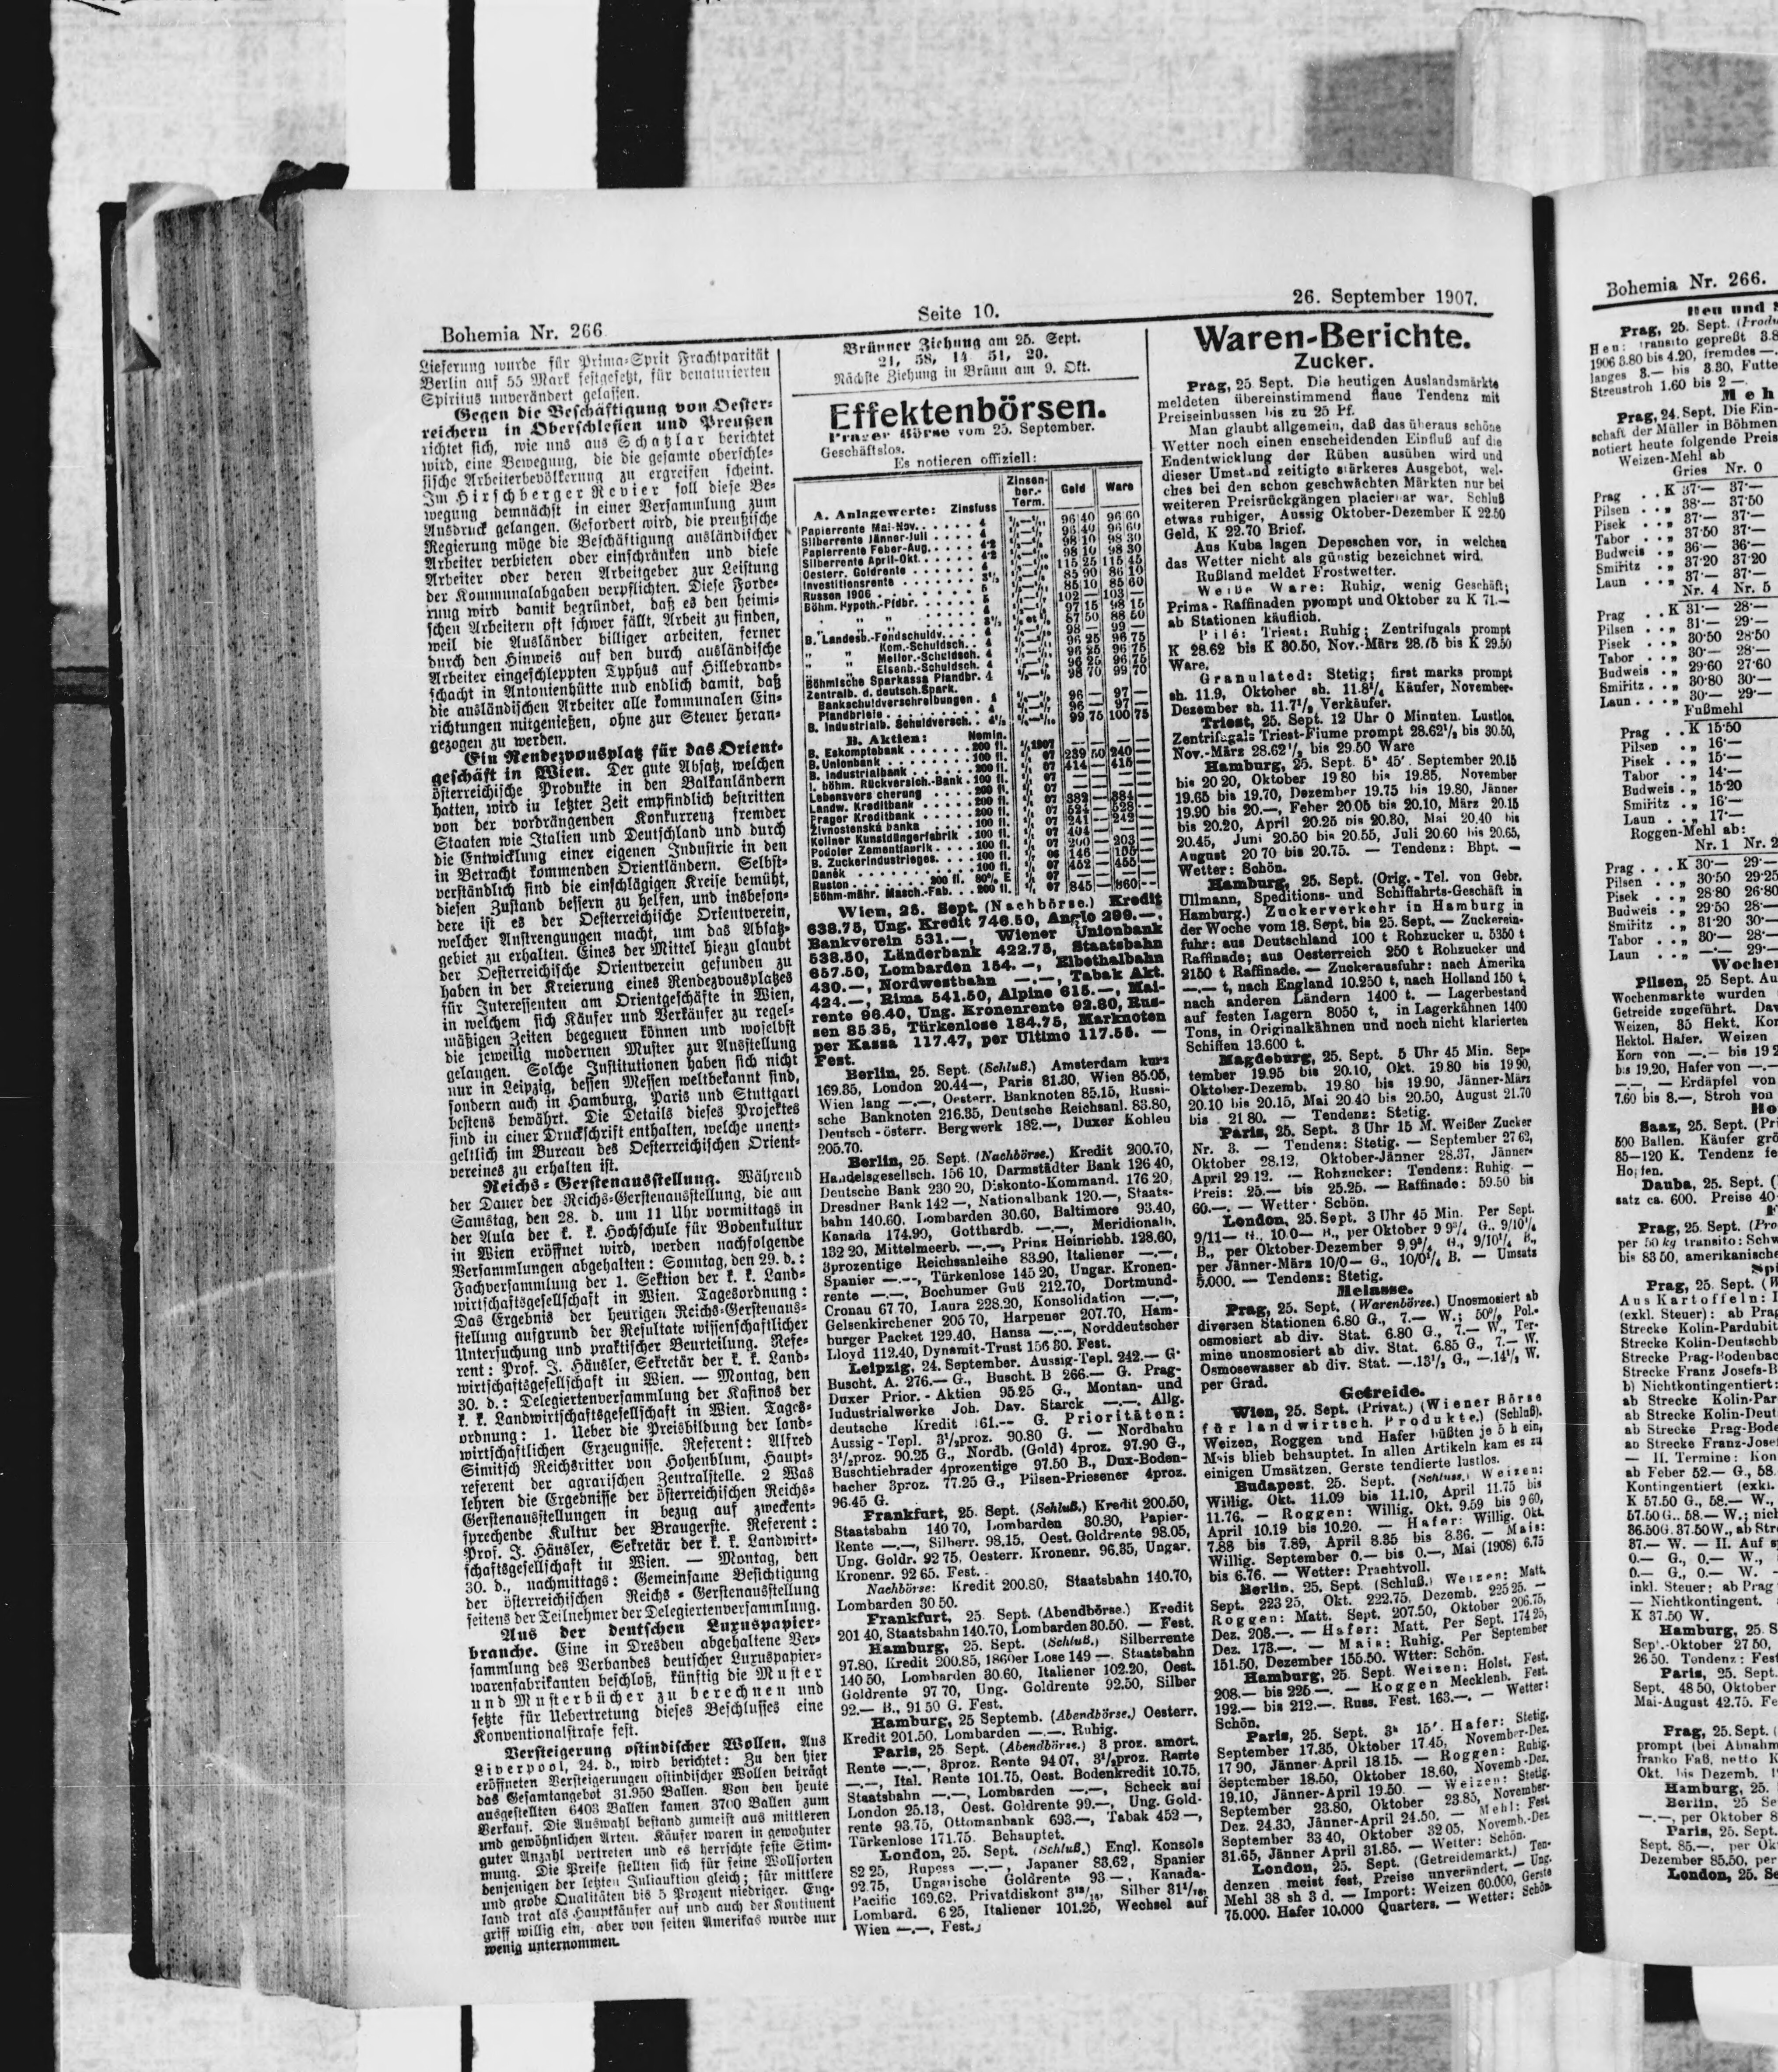 Bohemia Nr. 266
Seite 10.
26. September 1907.
Lieferung wurde für Prima-Sprit Frachtparität
Berlin auf 55 Mark festgesetzt, für denaturierten
Spiritus unverändert gelassen.
Gegen die Beschäftigung von Oester-
reichern in Oberschlesien und Preußen
richtet sich, wie uns aus Schatzlar berichtet
wird, eine Bewegung, die die gesamte oberschle-
sische Arbeiterbevölkerung zu ergreifen scheint.
Im Hirschberger Revier soll diese Be-
wegung demnächst in einer Versammlung zum
Ausdruck gelangen. Gefordert wird, die preußische
Regierung möge die Beschäftigung ausländischer
Arbeiter verbieten oder einschränken und diese
Arbeiter oder deren Arbeitgeber zur Leistung
der Kommunalabgaben verpflichten. Diese Forde-
rung wird damit begründet, daß es den heimi-
schen Arbeitern oft schwer fällt, Arbeit zu finden,
weil die Ausländer billiger arbeiten, ferner
durch den Hinweis auf den durch ausländische
Arbeiter eingeschleppten Typhus auf Hillebrand-
schacht in Antonienhütte und endlich damit, daß
die ausländischen Arbeiter alle kommunalen Ein-
richtungen mitgenießen, ohne zur Steuer heran-
gezogen zu werden.
Ein Rendezvousplatz für das Orient-
geschäft in Wien. Der gute Absatz, welchen
österreichische Produkte in den Balkanländern
hatten, wird in letzter Zeit empfindlich bestritten
von der vordrängenden Konkurrenz fremder
Staaten wie Italien und Deutschland und durch
die Entwicklung einer eigenen Industrie in den
in Betracht kommenden Orientländern. Selbst-
verständlich sind die einschlägigen Kreise bemüht,
diesen Zustand bessern zu helfen, und insbeson-
dere ist es der Oesterreichische Orientverein,
welcher Anstrengungen macht, um das Absatz-
gebiet zu erhalten. Eines der Mittel hiezu glaubt
der Oesterreichische Orientverein gefunden zu
haben in der Kreierung eines Rendezvousplatzes
für Interessenten am Orientgeschäfte in Wien,
in welchem sich Käufer und Verkäufer zu regel-
mäßigen Zeiten begegnen können und woselbst
die jeweilig modernen Muster zur Ausstellung
gelangen. Solche Institutionen haben sich nicht
nur in Leipzig, dessen Messen weltbekannt sind,
sondern auch in Hamburg, Paris und Stuttgart
bestens bewährt. Die Details dieses Projektes
sind in einer Druckschrift enthalten, welche unent-
geltlich im Bureau des Oesterreichischen Orient-
vereines zu erhalten ist.
Reichs-Gerstenausstellung. Während
der Dauer der Reichs-Gerstenausstellung, die am
Samstag, den 28. d. um 11 Uhr vormittags in
der Aula der k. k. Hochschule für Bodenkultur
in Wien eröffnet wird, werden nachfolgende
Versammlungen abgehalten: Sonntag, den 29. d.:
Fachversammlung der 1. Sektion der k. k. Land-
wirtschaftsgesellschaft in Wien. Tagesordnung:
Das Ergebnis der heurigen Reichs-Gerstenaus-
stellung aufgrund der Resultate wissenschaftlicher
Untersuchung und praktischer Beurteilung. Refe-
rent: Prof. J. Häusler, Sekretär der k. k. Land-
wirtschaftsgesellschaft in Wien. — Montag, den
30. d.: Delegiertenversammlung der Kasinos der
k. k. Landwirtschaftsgesellschaft in Wien. Tages-
ordnung: 1. Ueber die Preisbildung der land-
wirtschaftlichen Erzeugnisse. Referent: Alfred
Simitsch Reichsritter von Hohenblum, Haupt-
referent der agrarischen Zentralstelle. 2 Was
lehren die Ergebnisse der österreichischen Reichs-
Gerstenausstellungen in bezug auf zweckent-
sprechende Kultur der Braugerste. Referent:
Prof. J. Häusler, Sekretär der k. k. Landwirt-
schaftsgesellschaft in Wien. — Montag, den
30. d., nachmittags: Gemeinsame Besichtigung
der österreichischen Reichs-Gerstenausstellung
seitens der Teilnehmer der Delegiertenversammlung.
Aus der deutschen Luxuspapier-
branche. Eine in Dresden abgehaltene Ver-
sammlung des Verbandes deutscher Luxuspapier-
warenfabrikanten beschloß, künftig die Muster
und Musterbücher zu berechnen und
setzte für Uebertretung dieses Beschlusses eine
Konventionalstrafe fest.
Versteigerung ostindischer Wollen. Aus
Liverpool, 24. d., wird berichtet: Zu den hier
eröffneten Versteigerungen ostindischer Wollen beträgt
das Gesamtangebot 31.950 Ballen. Von den heute
ausgestellten 6403 Ballen kamen 3700 Ballen zum
Verkauf. Die Auswahl bestand zumeist aus mittleren
und gewöhnlichen Arten. Käufer waren in gewohnter
guter Anzahl vertreten und es herrschte feste Stim-
mung. Die Preise stellten sich für feine Wollsorten
denjenigen der letzten Juliauktion gleich; für mittlere
und grobe Qualitäten bis 5 Prozent niedriger. Eng-
land trat als Hauptkäufer auf und auch der Kontinent
griff willig ein, aber von seiten Amerikas wurde nur
wenig unternommen.
Brünner Ziehung am 25. Sept.
21, 58, 14 51, 20.
Nächste Ziehung in Brünn am 9. Okt.
Effektenbörsen.
Prager Börse vom 25. September.
Geschäftslos.
Es notieren offiziell:
A. Anlagewerte: Zinsfuss Zinsen-ber.-Term. Geld Ware
Papierrente Mai-Nov. 4 96 40 96 60
Silberrente Jänner-Juli 4 96 40 96 60
Papierrente Feber-Aug. 4·2 98 10 98 30
Silberrente April-Okt. 4·2 98 10 98 30
Oesterr. Goldrente 4 115 25 115 45
Investitionsrente 3½ 85 90 86 10
Russen 1906 5 85 10 85 60
Böhm. Hypoth.-Pfdbr. 5 102 — 103 —
97 15 98 15
87 50 88 50
B. Landesb.-Fondschuldv. 4 98 — 99 —
" " Kom.-Schuldsch. 4 96 25 96 75
" " Melior.-Schuldsch. 4 96 25 96 75
" " Eisenb.-Schuldsch. 4 96 25 96 75
Böhmische Sparkassa Pfandbr. 4 98 70 99 70
Zentralb. d. deutsch. Spark.
Bankschuldverschreibungen 4 96 — 97 —
Pfandbriefe 96 — 97 —
B. Industrialb. Schuldversch. 4½ 99 75 100 75
B. Aktien: Nomin.
B. Eskomptebank 200 fl.
B. Unionbank 100 fl. 07 239 50 240 —
B. Industrialbank 200 fl. 07 414 — 415 —
1. böhm. Rückversich.-Bank 100 fl. 07
Lebensvers cherung 200 fl. 07
Landw. Kreditbank 200 fl. 07 382 — 384 —
Prager Kreditbank 200 fl. 07 524 — 528 —
Živnostenská banka 100 fl. 07 241 — 242 —
Koliner Kunstdüngerfabrik 100 fl. 07 404 — — —
Podoler Zementfabrik 100 fl. 07 200 — 203 —
B. Zuckerindustrieges. 100 fl. 06 146 — 155 —
Daněk 100 fl. 07 452 — 455 —
Ruston 200 fl. 80% E 07
Böhm-mähr. Masch.-Fab. 200 fl. 07 845 — 860 —
Wien, 25. Sept. (Nachbörse.) Kredit
638.75, Ung. Kredit 746.50, Anglo 299.—,
Bankverein 531.—, Wiener Unionbank
538.50, Länderbank 422.75, Staatsbahn
657.50, Lombarden 154.—, Elbethalbahn
430.—, Nordwestbahn —.—, Tabak Akt.
424.—, Rima 541.50, Alpine 615.—, Mai-
rente 96.40, Ung. Kronenrente 92.80, Rus-
sen 85.35, Türkenlose 184.75, Marknoten
per Kassa 117.47, per Ultimo 117.55. —
Fest.
Berlin, 25. Sept. (Schluß.) Amsterdam kurz
169.35, London 20.44—, Paris 81.30, Wien 85.05,
Wien lang —.—, Oesterr. Banknoten 85.15, Russi-
sche Banknoten 216.35, Deutsche Reichsanl. 83.80,
Deutsch-österr. Bergwerk 182.—, Duxer Kohlen
205.70.
Berlin, 25. Sept. (Nachbörse.) Kredit 200.70,
Handelsgesellsch. 156 10, Darmstädter Bank 126 40,
Deutsche Bank 230 20, Diskonto-Kommand. 176 20,
Dresdner Bank 142 —, Nationalbank 120.—, Staats-
bahn 140.60, Lombarden 30.60, Baltimore 93.40,
Kanada 174.90, Gotthardb. —.—, Meridionalb.
132 20, Mittelmeerb. —.—, Prinz Heinrichb. 128.60,
3prozentige Reichsanleihe 83.90, Italiener —.—,
Spanier —.—, Türkenlose 145 20, Ungar. Kronen-
rente —.—, Bochumer Guß 212.70, Dortmund-
Cronau 67 70, Laura 228.20, Konsolidation —.—,
Gelsenkirchener 205 70, Harpener 207.70, Ham-
burger Packet 129.40, Hansa —.—, Norddeutscher
Lloyd 112.40, Dynamit-Trust 156 30. Fest.
Leipzig, 24. September. Aussig-Tepl. 242.— G·
Buscht. A. 276.— G., Buscht. B 266.— G. Prag-
Duxer Prior.-Aktien 95.25 G., Montan- und
Industrialwerke Joh. Dav. Starck —.—. Allg.
deutsche Kredit 161.-- G. Prioritäten:
Aussig-Tepl. 3½proz. 90.80 G. — Nordbahn
3½proz. 90.25 G., Nordb. (Gold) 4proz. 97.90 G.,
Buschtiehrader 4prozentige 97.50 B., Dux-Boden-
bacher 3proz. 77.25 G., Pilsen-Priesener 4proz.
96.45 G.
Frankfurt, 25. Sept. (Schluß.) Kredit 200.50,
Staatsbahn 140 70, Lombarden 30.30, Papier-
Rente —.—, Silberr. 98.15, Oest. Goldrente 98.05,
Ung. Goldr. 92 75, Oesterr. Kronenr. 96.35, Ungar.
Kronenr. 92 65. Fest.
Nachbörse: Kredit 200.80, Staatsbahn 140.70,
Lombarden 30 50.
Frankfurt, 25. Sept. (Abendbörse.) Kredit
201 40, Staatsbahn 140.70, Lombarden 30.50. — Fest.
Hamburg, 25. Sept. (Schluß.) Silberrente
97.80, Kredit 200.85, 1860er Lose 149 —. Staatsbahn
140 50, Lombarden 30.60, Italiener 102.20, Oest.
Goldrente 97 70, Ung. Goldrente 92.50, Silber
92.— B., 91 50 G. Fest.
Hamburg, 25 Septemb. (Abendbörse.) Oesterr.
Kredit 201.50, Lombarden —.—. Ruhig.
Paris, 25 Sept. (Abendbörse.) 3 proz. amort.
Rente —.—, 3proz. Rente 94 07, 3½proz. Rente
—.—, Ital. Rente 101.75, Oest. Bodenkredit 10.75,
Staatsbahn —.—, Lombarden —.—, Scheck auf
London 25.13, Oest. Goldrente 99.—, Ung. Gold-
rente 93.75, Ottomanbank 693.—, Tabak 452 —,
Türkenlose 171.75. Behauptet.
London, 25. Sept. (Schluß.) Engl. Konsols
82 25, Rupess —.—, Japaner 83.62, Spanier
92.75, Ungarische Goldrente 93 —, Kanada-
Pacific 169.62, Privatdiskont 3¹³/₁₆, Silber 31¹/₁₆,
Lombard. 6 25, Italiener 101.25, Wechsel auf
Wien —.—, Fest.
Waren-Berichte.
Zucker.
Prag, 25. Sept. Die heutigen Auslandsmärkte
meldeten übereinstimmend flaue Tendenz mit
Preiseinbussen bis zu 25 Pf.
Man glaubt allgemein, daß das überaus schöne
Wetter noch einen entscheidenden Einfluß auf die
Endentwicklung der Rüben ausüben wird und
dieser Umstand zeitigte stärkeres Ausgebot, wel-
ches bei den schon geschwächten Märkten nur bei
weiteren Preisrückgängen placierbar war. Schluß
etwas ruhiger, Aussig Oktober-Dezember K 22.50
Geld, K 22.70 Brief.
Aus Kuba lagen Depeschen vor, in welchen
das Wetter nicht als günstig bezeichnet wird.
Rußland meldet Frostwetter.
Weiße Ware: Ruhig, wenig Geschäft;
Prima-Raffinaden prompt und Oktober zu K 71.—
ab Stationen käuflich.
Pilé: Triest: Ruhig; Zentrifugals prompt
K 28.62 bis K 30.50, Nov.-März 28.75 bis K 29.50
Ware.
Granulated: Stetig; first marks prompt
sh. 11.9, Oktober sh. 11.8¼ Käufer, November-
Dezember sh. 11.7½ Verkäufer.
Triest, 25. Sept. 12 Uhr 0 Minuten. Lustlos.
Zentrifugals Triest-Fiume prompt 28.62½ bis 30.50,
Nov.-März 28.62½ bis 29.50 Ware
Hamburg, 25. Sept. 5ʰ 45′. September 20.15
bis 20 20, Oktober 19 80 bis 19.85, November
19.65 bis 19.70, Dezember 19.75 bis 19.80, Jänner
19.90 bis 20.—, Feber 20.05 bis 20.10, März 20.15
bis 20.20, April 20.25 bis 20.30, Mai 20.40 bis
20.45, Juni 20.50 bis 20.55, Juli 20.60 bis 20.65,
August 20 70 bis 20.75. — Tendenz: Bhpt. —
Wetter: Schön.
Hamburg, 25. Sept. (Orig.-Tel. von Gebr.
Ullmann, Speditions- und Schiffahrts-Geschäft in
Hamburg.) Zuckerverkehr in Hamburg in
der Woche vom 18. Sept. bis 25. Sept. — Zuckerein-
fuhr: aus Deutschland 100 t Rohzucker u. 5350 t
Raffinade; aus Oesterreich 250 t Rohzucker und
2150 t Raffinade. — Zuckerausfuhr: nach Amerika
—.— t, nach England 10.250 t, nach Holland 150 t,
nach anderen Ländern 1400 t. — Lagerbestand
auf festen Lagern 8050 t, in Lagerkähnen 1400
Tons, in Originalkähnen und noch nicht klarierten
Schiffen 13.600 t.
Magdeburg, 25. Sept. 5 Uhr 45 Min. Sep-
tember 19.95 bis 20.10, Okt. 19.80 bis 19 90,
Oktober-Dezemb. 19.80 bis 19.90, Jänner-März
20.10 bis 20.15, Mai 20.40 bis 20.50, August 21.70
bis 21 80. — Tendenz: Stetig.
Paris, 25. Sept. 3 Uhr 15 M. Weißer Zucker
Nr. 3. — Tendenz: Stetig. — September 27 62,
Oktober 28.12, Oktober-Jänner 28.37, Jänner-
April 29 12. — Rohzucker: Tendenz: Ruhig. —
Preis: 25.— bis 25.25. — Raffinade: 59.50 bis
60.—. — Wetter: Schön.
London, 25. Sept. 3 Uhr 45 Min. Per Sept.
9/11— G., 10 0— B., per Oktober 9 9¾ G., 9/10¼
B., per Oktober-Dezember 9,9¾ G., 9/10¼ B.,
per Jänner-März 10/0— G., 10/0¼ B. — Umsatz
5.000. — Tendenz: Stetig.
Melasse.
Prag, 25. Sept. (Warenbörse.) Unosmosiert ab
diversen Stationen 6.80 G., 7.— W.; 50% Pol.-
osmosiert ab div. Stat. 6.80 G., 7.— W., Ter-
mine unosmosiert ab div. Stat. 6.85 G., 7.— W.
Osmosewasser ab div. Stat. —.13½ G., —.14½ W.
per Grad.
Getreide.
Wien, 25. Sept. (Privat.) (Wiener Börse
für landwirtsch. Produkte.) (Schluß).
Weizen, Roggen und Hafer büßten je 5 h ein,
Mais blieb behauptet. In allen Artikeln kam es zu
einigen Umsätzen. Gerste tendierte lustlos.
Budapest, 25. Sept. (Schluss.) Weizen:
Willig. Okt. 11.09 bis 11.10, April 11.75 bis
11.76. — Roggen: Willig. Okt. 9.59 bis 9 60,
April 10.19 bis 10.20. — Hafer: Willig. Okt.
7.88 bis 7.89, April 8.35 bis 8.36. — Mais:
Willig. September 0.— bis 0.—, Mai (1908) 6.75
bis 6.76. — Wetter: Prachtvoll.
Berlin, 25. Sept. (Schluß.) Weizen: Matt.
Sept. 223 25, Okt. 222.75, Dezemb. 225 25. —
Roggen: Matt. Sept. 207.50, Oktober 206.75,
Dez. 208.—. — Hafer: Matt. Per Sept. 174 25,
Dez. 173.—. — Mais: Ruhig. Per September
151.50, Dezember 155.50. Wtter: Schön.
Hamburg, 25. Sept. Weizen: Holst. Fest.
208.— bis 225 —. — Roggen Mecklenb. Fest.
192.— bis 212.—. Russ. Fest. 163.—. — Wetter:
Schön.
Paris, 25. Sept. 3ʰ 15′. Hafer: Stetig.
September 17.85, Oktober 17 45, November-Dez.
17 90, Jänner-April 18.15. — Roggen: Ruhig.
September 18.50, Oktober 18.60, Novemb.-Dez.
19.10, Jänner-April 19.50. — Weizen: Stetig.
September 23.80, Oktober 23.85, November-
Dez. 24.30, Jänner-April 24.50. — Mehl: Fest
September 33 40, Oktober 32 05, Novemb.-Dez
31.65, Jänner April 31.85. — Wetter: Schön.
London, 25. Sept. (Getreidemarkt.) Ten-
denzen meist fest, Preise unverändert. — Ung.
Mehl 38 sh 3 d. — Import: Weizen 60.000, Gerste
75.000. Hafer 10.000 Quarters. — Wetter: Schön.
Bohemia Nr. 266.
Heu und
Prag, 25. Sept.
Heu: transito gepreßt 3.8
1906 3.80 bis 4.20, fremdes —.
langes 3.— bis 3.30, Futte
Streustroh 1.60 bis 2 —.
Meh
Prag, 24. Sept. Die Ein-
schaft der Müller in Böhmen
notiert heute folgende Preis
Weizen-Mehl ab
Gries Nr. 0
Prag . . K 37·— 37·—
Pilsen . . „ 38·— 37·50
Pisek . . „ 37·— 37·—
Tabor . . „ 37·50 37·—
Budweis . „ 36·— 36·—
Smiřitz . . „ 37·20 37·20
Laun . . „ 37·— 37·—
Nr. 4 Nr. 5
Prag . . K 31·— 28·—
Pilsen . . „ 31·— 29·—
Pisek . . „ 30·50 28·50
Tabor . . „ 30·— 28·—
Budweis . „ 29·60 27·60
Smiřitz . . „ 30·80 30·—
Laun . . „ 30·— 29·—
Fußmehl
Prag . . K 15·50
Pilsen . „ 16·—
Pisek . . „ 15·—
Tabor . „ 14·—
Budweis . „ 15·20
Smiřitz . „ 16·—
Laun . . „ 17·—
Roggen-Mehl ab:
Nr. 1 Nr. 2
Prag . . . K 30·— 29·—
Pilsen . . „ 30·50 29·25
Pisek . . „ 28·80 26·80
Budweis . „ 29·50 28·—
Smiřitz . „ 31·20 30·—
Tabor . . „ 30·— 28·—
Laun . . „ —·— 29·—
Wochen
Pilsen, 25 Sept. Au
Wochenmarkte wurden
Getreide zugeführt. Dav
Weizen, 35 Hekt. Kor
Hektol. Hafer. Weizen
Korn von —.— bis 19 2
bis 19.20, Hafer von —.—
—.—, — Erdäpfel von
7.60 bis 8.—, Stroh von
Ho
Saaz, 25. Sept. (Pri
500 Ballen. Käufer grö
85—120 K. Tendenz fe
Hopfen.
Dauba, 25. Sept. (
satz ca. 600. Preise 40
Prag, 25. Sept. (Pro
per 50 kg transito: Schw
bis 83 50, amerikanische
Spi
Prag, 25. Sept. (W
Aus Kartoffeln: I
(exkl. Steuer): ab Prag
Strecke Kolin-Pardubit
Strecke Kolin-Deutschb
Strecke Prag-Bodenbac
Strecke Franz Josefs-B
b) Nichtkontingentiert:
ab Strecke Kolin-Par
ab Strecke Kolin-Deut
ab Strecke Prag-Bode
ab Strecke Franz-Josef
— II. Termine: Kon
ab Feber 52.— G., 58.
Kontingentiert (exkl.
K 57.50 G., 58.— W.,
57.50 G.. 58.— W.; nich
36.50G. 37.50W., ab Stre
37.— W. — II. Auf s
0.— G., 0.— W.,
0.— G., 0.— W. -
inkl. Steuer: ab Prag
— Nichtkontingent.
K 37.50 W.
Hamburg, 25. S
Sep'.-Oktober 27 50,
26 50. Tendenz: Fest
Paris, 25. Sept.
Sept. 48 50, Oktober
Mai-August 42.75. Fe
Prag, 25. Sept. (
prompt (bei Abnahm
franko Faß, netto K
Okt. bis Dezemb. 1
Hamburg, 25.
Berlin, 25 Se
—.—, per Oktober 8
Paris, 25. Sept.
Sept. 85.—, per Ok
Dezember 85.50, per
London, 25. Se